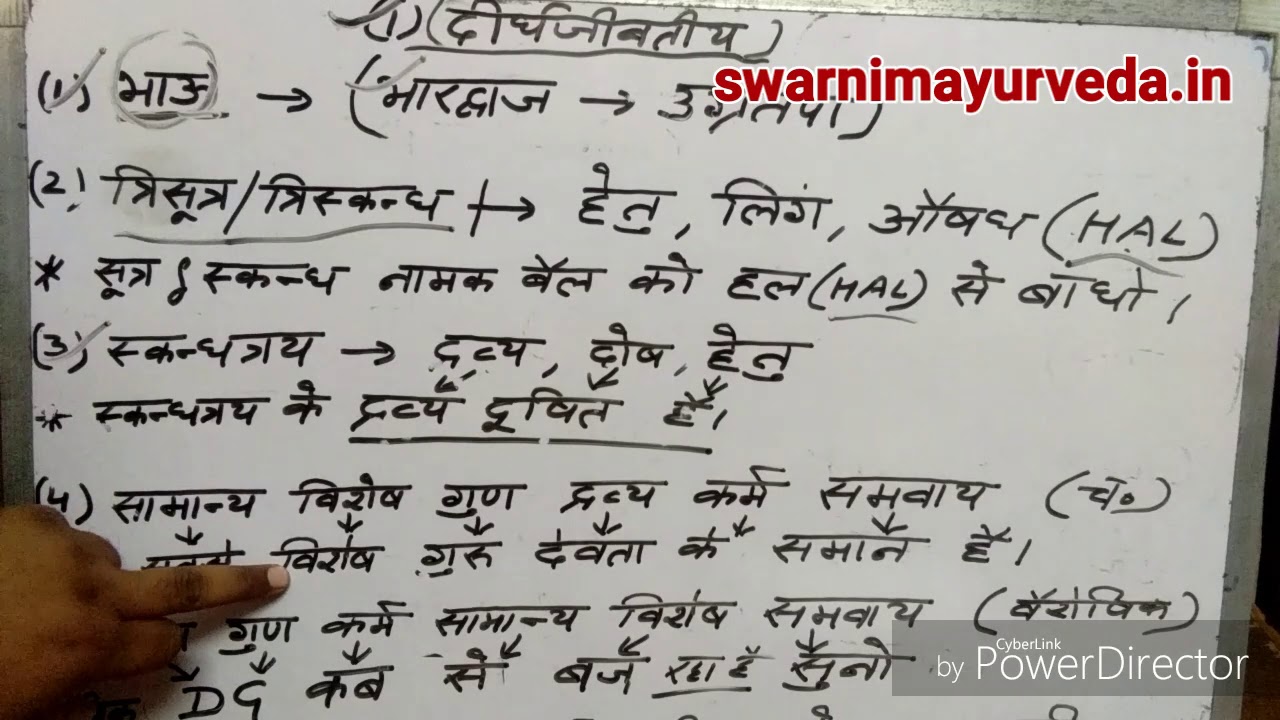 1) (दीर्घजीवतीय)
swarnimayurveda.in
(1) भाऊ → (भारद्वाज → उग्रतपा)
(2) त्रिसूत्र/त्रिस्कन्ध → हेतु, लिंग, औषध (HAL)
* सूत्र स्कन्ध नामक बैल को हल (HAL) से बांधो।
(3) स्कन्धत्रय → द्रव्य, दोष, हेतु
* स्कन्धत्रय के द्रव्य दूषित हैं।
(4) सामान्य विशेष गुण द्रव्य कर्म समवाय (च०)
विशेष गुरू देवता के समान हैं।
गुण कर्म सामान्य विशेष समवाय (वैशेषिक)
DG कब से बज रहा है सुनो
CyberLink
by PowerDirector